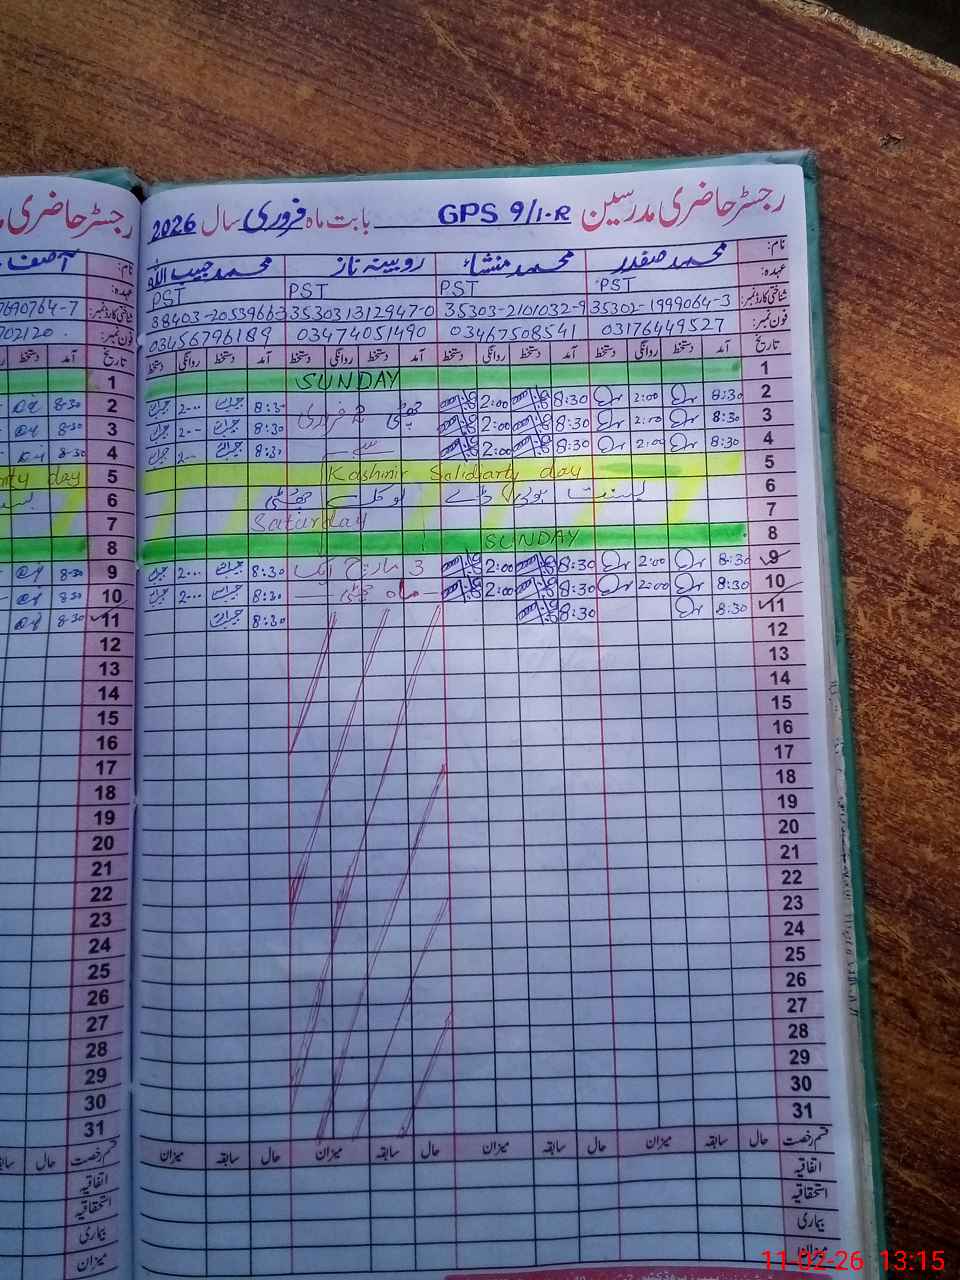 رجسٹر حاضری مدرسین GPS 9/1-R بابت ماہ فروری سال 2026
رجسٹر حاضری
نام: محمد صفدر محمد منشاء روبینہ ناز محمد حبیب اللہ
نام: آصف
عہدہ: PST PST PST PST
عہدہ:
شناختی کارڈ نمبر: 35302-1999064-3 35303-2101032-9 353031312947-0 38403-2053966-3
شناختی کارڈ نمبر: 690764-7
فون نمبر: 03176449527 03467508541 03474051490 03456796189
فون نمبر: 702120
تاریخ آمد دستخط روانگی دستخط آمد دستخط روانگی دستخط آمد دستخط روانگی دستخط آمد دستخط روانگی دستخط
تاریخ آمد دستخط
1 SUNDAY 1
2 8:30 2:00 8:30 2:00 چھٹی 2 فروری 8:30 2:00 2 8:30
3 8:30 2:00 8:30 2:00 8:30 2:00 3 8:30
4 8:30 2:00 8:30 2:00 سے 8:30 2:00 4 8:30
5 Kashmir Solidiarty day 5 day
6 بسنت لوکل چھٹی 6
7 Saturday 7
8 SUNDAY 8
9 8:30 2:00 8:30 2:00 3 مارچ ایک 8:30 2:00 9 8:30
10 8:30 2:00 8:30 2:00 ماہ چھٹی 8:30 2:00 10 8:30
11 8:30 8:30 8:30 11 8:30
12 12
13 13
14 14
15 15
16 16
17 17
18 18
19 19
20 20
21 21
22 22
23 23
24 24
25 25
26 26
27 27
28 28
29 29
30 30
31 31
قسم رخصت حال سابقہ میزان حال سابقہ میزان حال سابقہ میزان حال سابقہ میزان
قسم رخصت حال
اتفاقیہ
اتفاقیہ
استحقاقیہ
استحقاقیہ
بیماری
بیماری
میزان
میزان
11-02-26 13:15